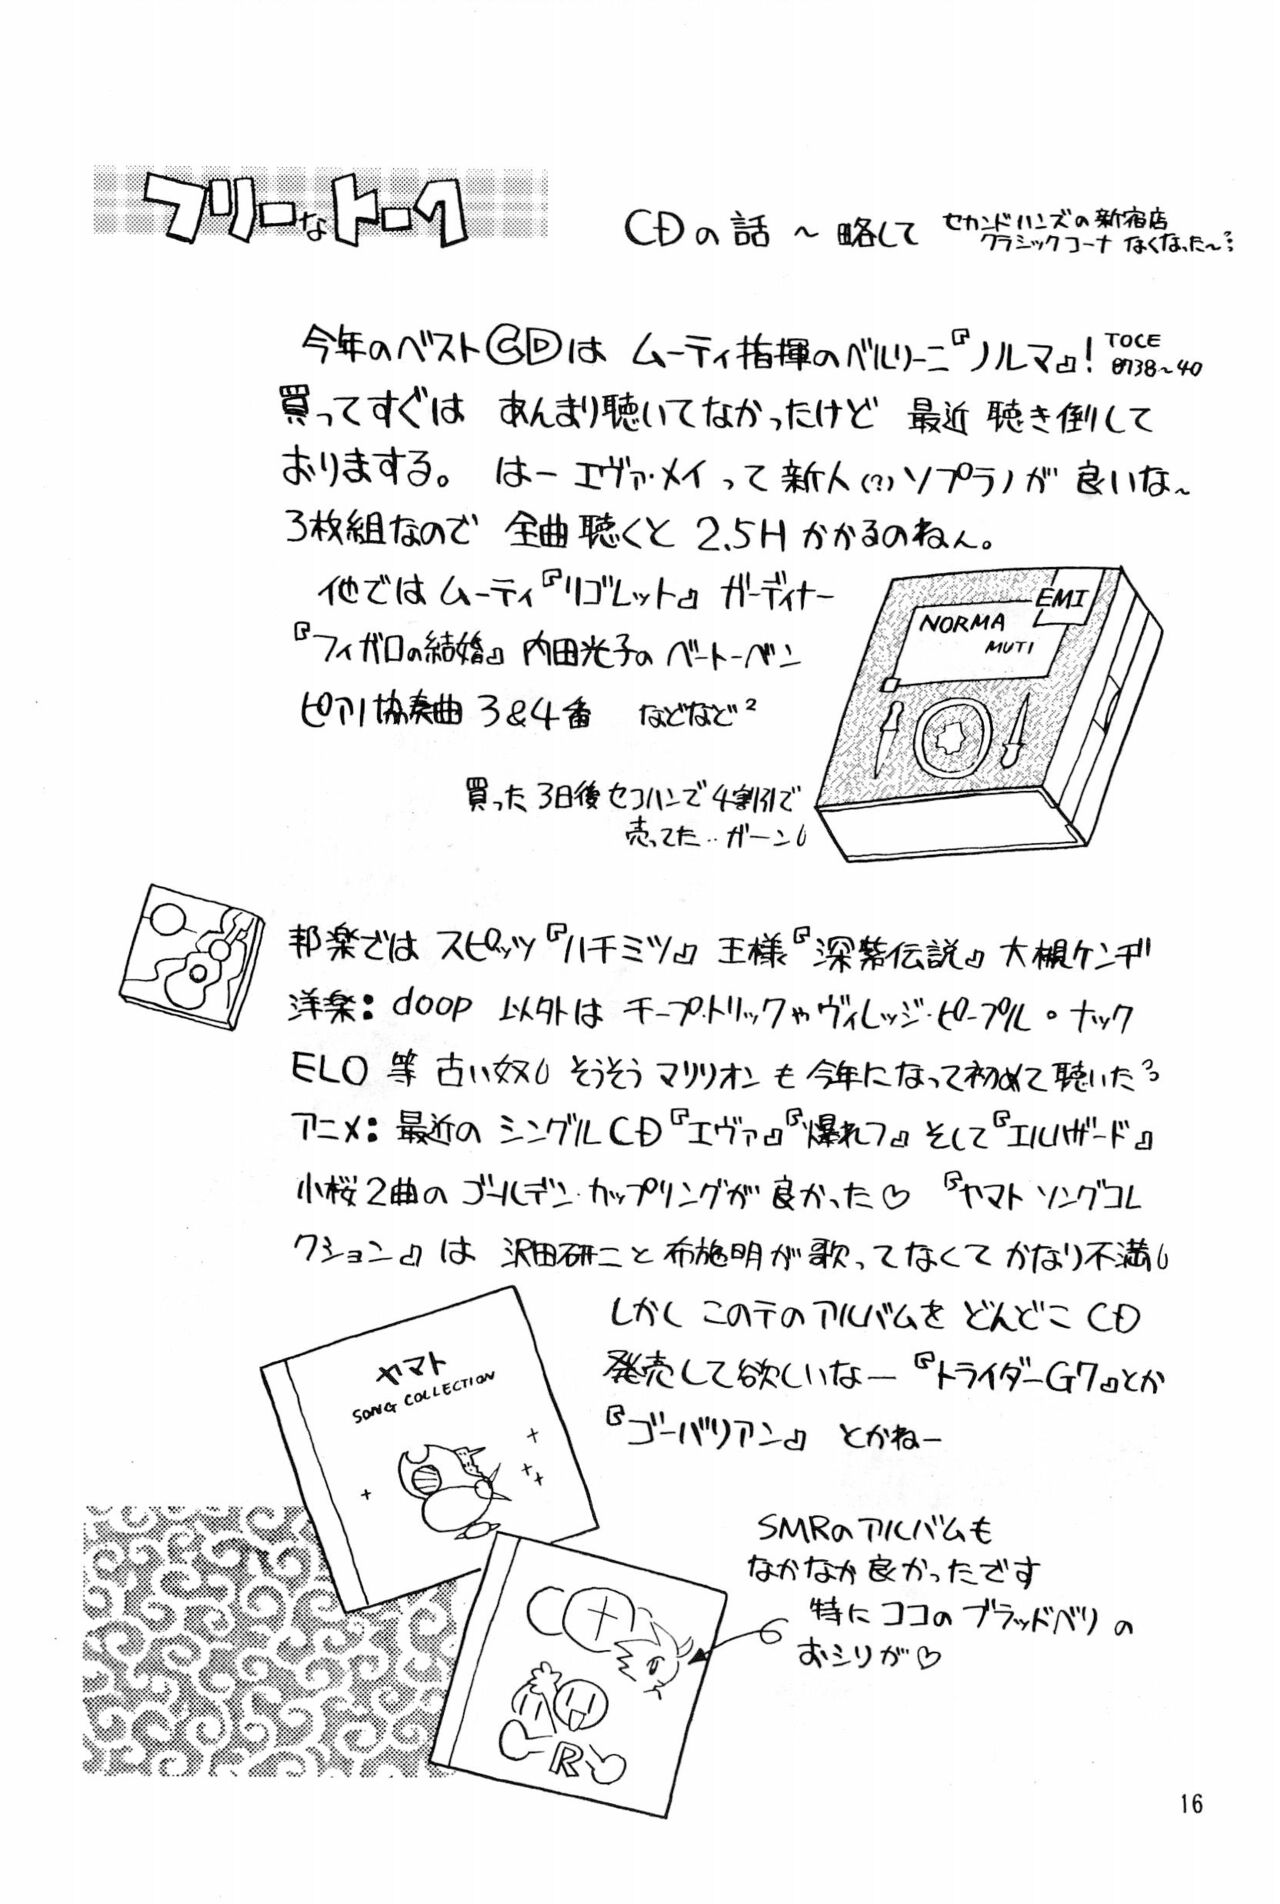 フリーなトーク
CDの話 〜 略して
セカンドハンズの新宿店
クラシックコーナ なくなった〜
今年のベストCDは ムーティ指揮のベルリーニ『ノルマ』!
TOCE
8738〜40
買ってすぐは あんまり聴いてなかったけど 最近 聴き倒して
おりまする。 はー エヴァ・メイって新人(?)ソプラノが 良いな〜
3枚組なので 全曲聴くと 2.5H かかるのねん。
他では ムーティ『リゴレット』 ガーディナー
『フィガロの結婚』 内田光子の ベートーベン
ピアノ協奏曲 3&4番 などなど²
EMI
NORMA
MUTI
買った 3日後 セコハンで 4割引で
売ってた‥ガーン
邦楽では スピッツ『ハチミツ』 王様『深紫伝説』 大槻ケンヂ
洋楽: doop 以外は チープ・トリックや ヴィレッジ・ピープル・ナック
ELO 等 古い奴 そうそう マリリオンも 今年になって初めて聴いた
アニメ: 最近の シングルCD『エヴァ』『爆れフ』そして『エルハザード』
小桜2曲の ゴールデン・カップリングが 良かった♡ 『ヤマト ソングコレ
クション』は 沢田研二と 布施明が歌ってなくて かなり不満
しかし このテのアルバムを どんどこ CD
発売して欲しいなー 『トライダーG7』とか
『ゴーバリアン』 とかねー
ヤマト
SONG COLLECTION
SMRのアルバムも
なかなか 良かったです
特に ココの ブラッドベリ の
おシリが♡
R
16